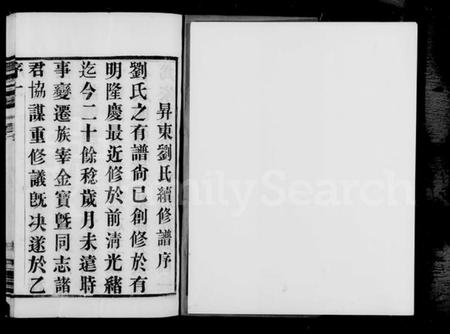 昇東劉氏續修譜序
劉氏之有譜尙已創修於有
明隆慶最近修於前清光緒
迄今二十餘稔歲月未遠時
事變遷族宰金寶曁同志諸
君協謀重修議旣決遂於乙
序 一
FamilySearch